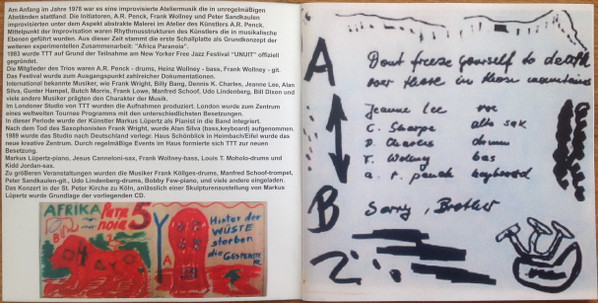 Am Anfang im Jahre 1978 war es eine improvisierte Ateliermusik die in unregelmäßigen
Abständen stattfand. Die Initiatoren, A.R. Penck, Frank Wollney und Peter Sandkaulen
improvisierten unter dem Aspekt abstrakte Malerei im Atelier des Künstlers A.R. Penck.
Mittelpunkt der Improvisation waren Rhythmusstrukturen des Künstlers die in musikalische
Ebenen geführt wurden. Aus dieser Zeit stammt die erste Schallplatte als Grundkonzept der
weiteren experimentellen Zusammenarbeit: "Africa Paranoia".
1983 wurde TTT auf Grund der Teilnahme am New Yorker Free Jazz Festival "UNUIT" offiziell
gegründet.
Die Mitglieder des Trios waren A.R. Penck - drums, Heinz Wollney - bass, Frank Wollney - git.
Das Festival wurde zum Ausgangspunkt zahlreicher Dokumentationen.
International bekannte Musiker, wie Frank Wright, Billy Bang, Dennis K. Charles, Jeanne Lee, Alan
Silva, Gunter Hampel, Butch Morris, Frank Lowe, Manfred Schoof, Udo Lindenberg, Bill Dixon und
viele andere Musiker prägten den Charakter der Musik.
Im Londoner Studio von TTT wurden die Aufnahmen produziert. London wurde zum Zentrum
eines weltweiten Tournee Programms mit den unterschiedlichsten Besetzungen.
In dieser Periode wurde der Künstler Markus Lüpertz als Pianist in die Band integriert.
Nach dem Tod des Saxophonisten Frank Wright, wurde Alan Silva (bass,keyboard) aufgenommen.
1989 wurde das Studio nach Deutschland verlegt. Haus Schönblick in Heimbach/Eifel wurde das
neue kreative Zentrum. Durch regelmäßige Events im Haus formierte sich TTT zur neuen
Besetzung.
Markus Lüpertz-piano, Jesus Canneloni-sax, Frank Wollney-bass, Louis T. Moholo-drums und
Kidd Jordan-sax.
Zu größeren Veranstaltungen wurden die Musiker Frank Köllges-drums, Manfred Schoof-trompet,
Peter Sandkaulen-git., Udo Lindenberg-drums, Bobby Few-piano, und viele andere eingeladen.
Das Konzert in der St. Peter Kirche zu Köln, anlässlich einer Skulpturenaustellung von Markus
Lüpertz wurde Grundlage der vorliegenden CD.
AFRIKA Para noia 5
Y
B
A
Hinter der
WÜSTE
sterben
die GESPENSTER
A
Dont freeze yourself to death
over there in those mountains
Jeanne Lee voc
C. Sharpe alto sax
D. Charles drums
F. Wollney bas
a. r. penck keyboard
B
Sorry, Brother